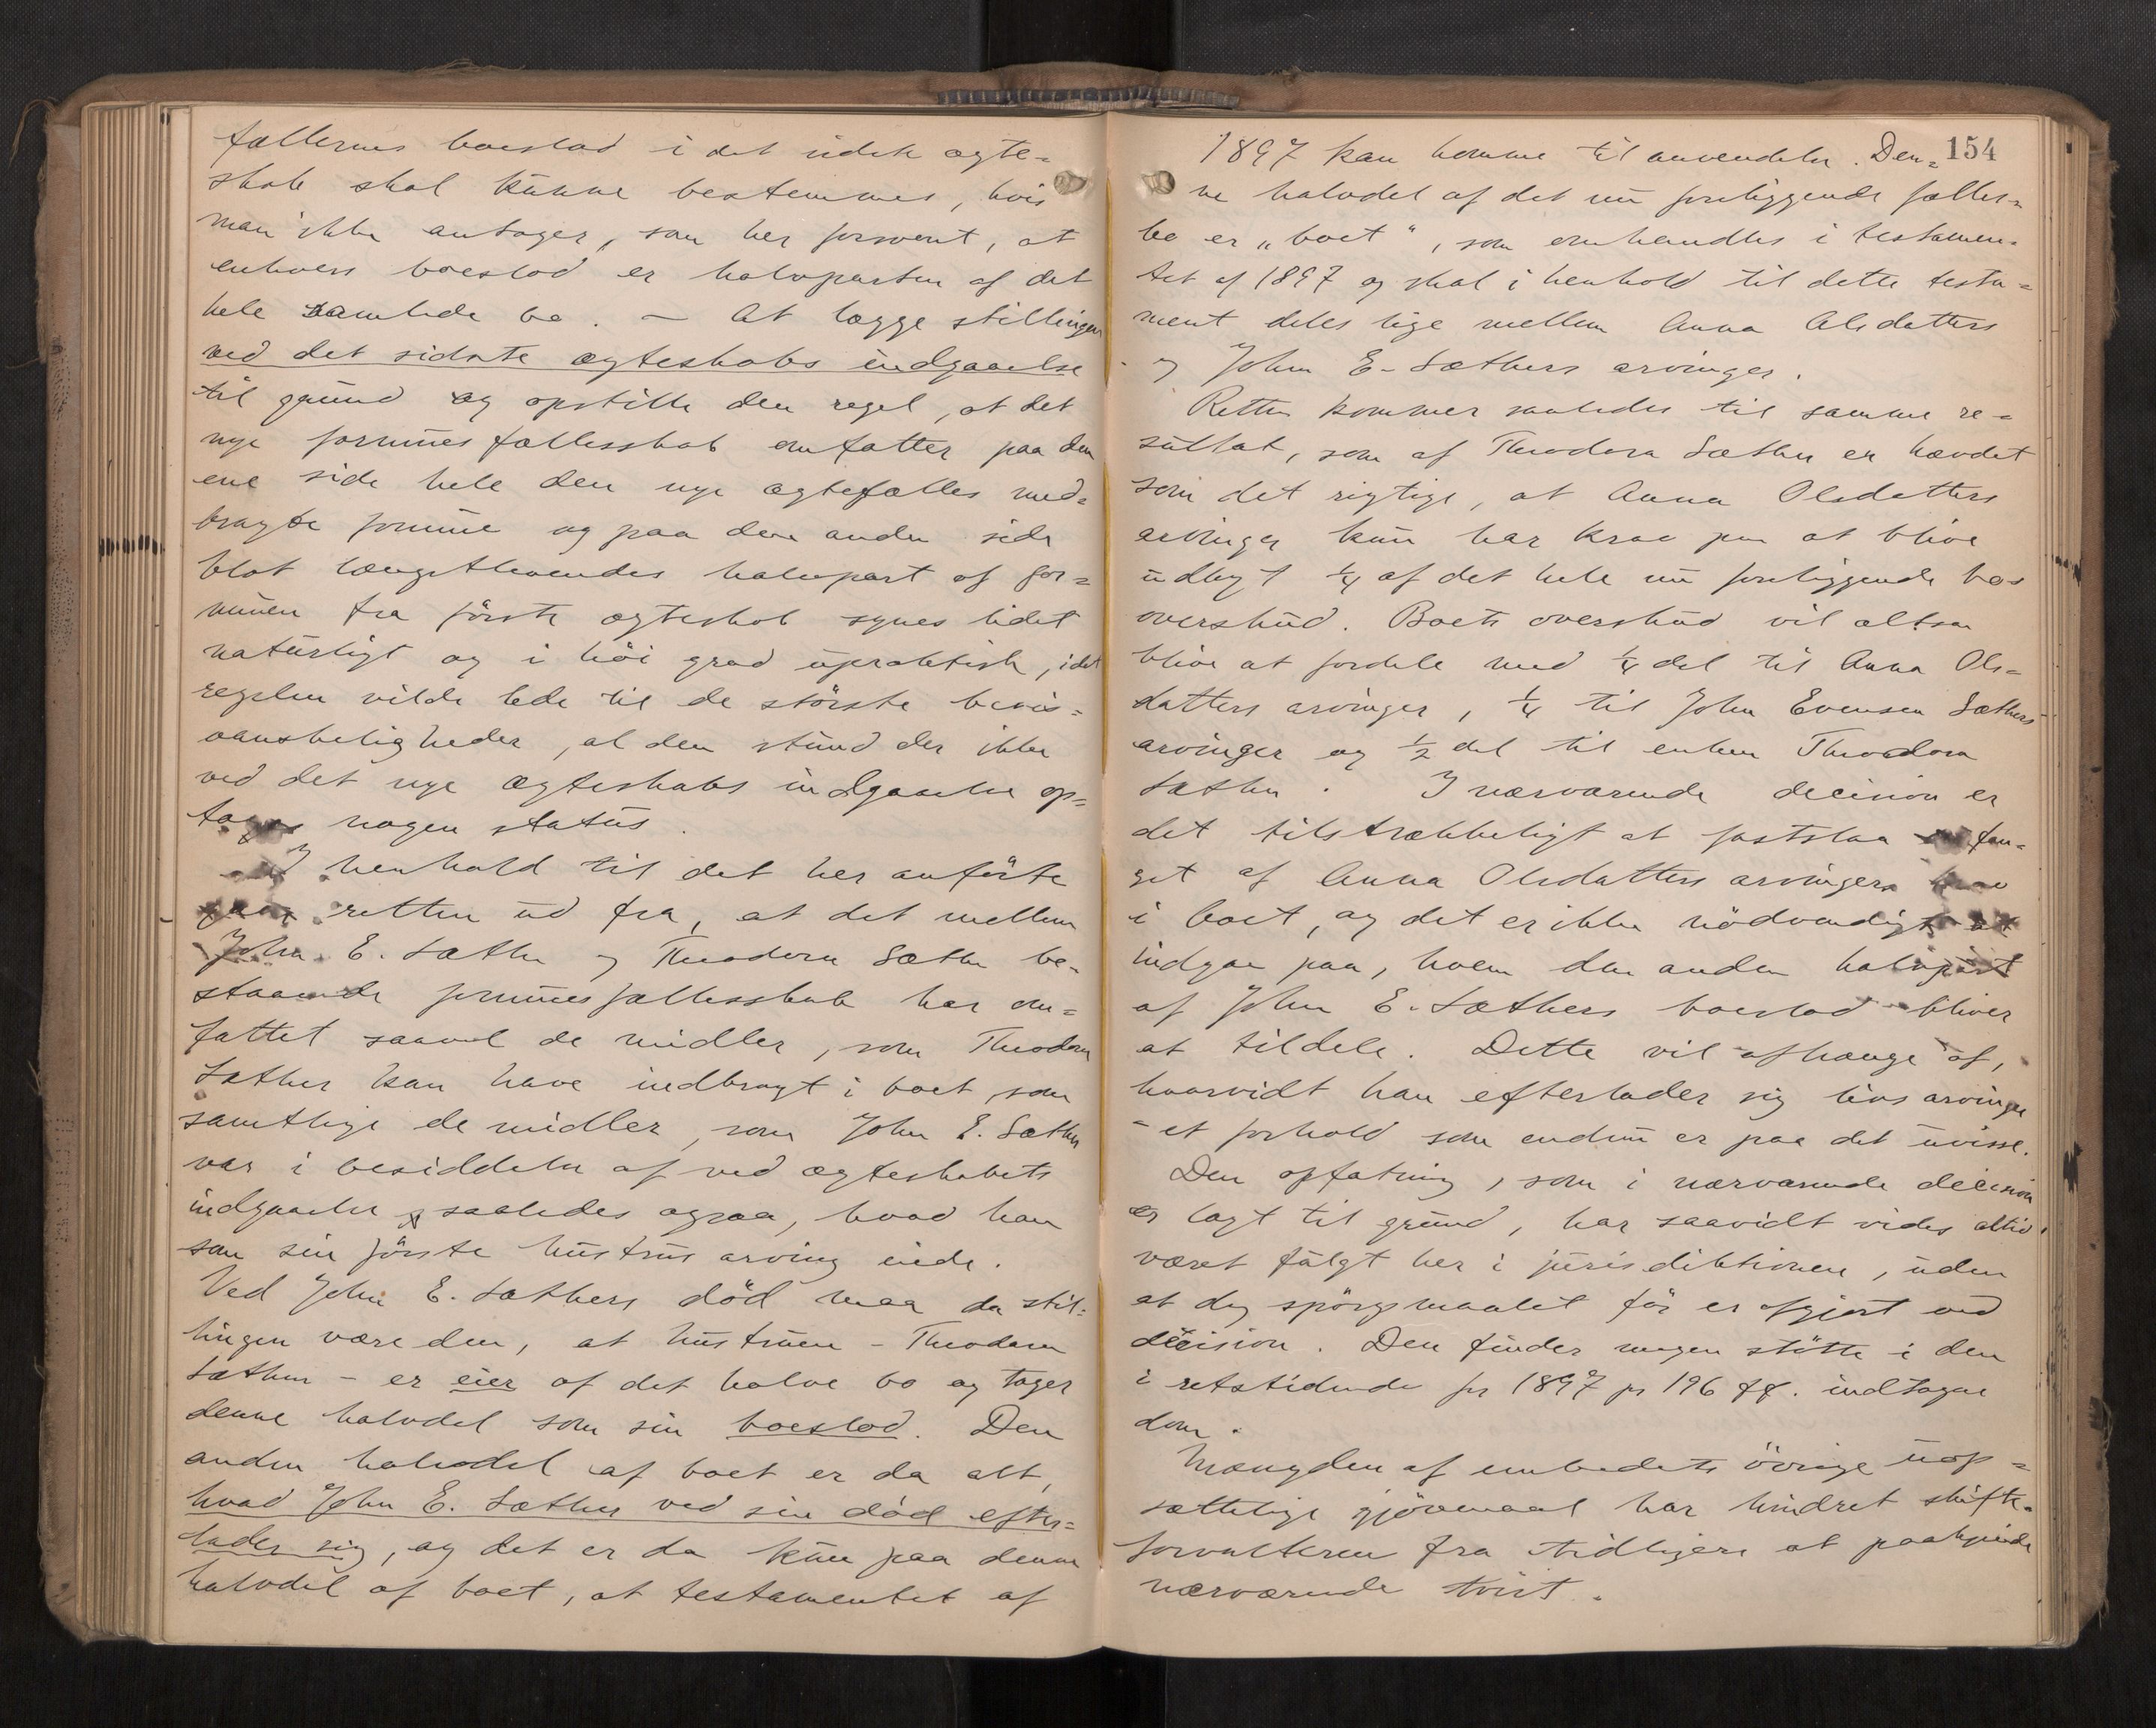 fællernes boeslod i det sidste ægte=
skab skal kunne bestemmes, hvis
man ikke antager, som her forment, at
enhvers boeslod er halvparten af det
hele samlede bo. — At lægge stillingen
ved det sidste ægteskabs indgaaelse
til grund og opstille den regel, at det
nye formuesfællesskab omfatter paa den
ene side hele den nye ægtefælles med=
bragte formue og paa den anden side
blot længstlevendes halvpart af for=
muen fra förste ægteskab synes lidet
naturligt og i höi grad upraktisk, idet
regelen vilde lede til de störste bevis=
vanskeligheder, al den stund der ikke
ved det nye ægteskabs indgaaelse op=
tages nogen status.
I henhold til det her anförte
gaar retten ud fra, at det mellem
John E. Sæther og Theodora Sæther be=
staaende formuesfællesskab har om=
fattet saavel de midler, som Theodora
Sæther kan have indbragt i boet, som
samtlige de midler, som John E. Sæther
var i besiddelse af ved ægteskabets
indgaaelse saaledes ogsaa, hvad han
som sin förste hustrus arving eiede.
Ved John E. Sæthers död maa da stil=
lingen være den, at hustruen – Theodora
Sæther – er eier af det halve bo og tager
denne halvdel som sin boeslod. Den
anden halvdel af boet er da alt,
hvad John E. Sæther ved sin död efter=
lader sig, og det er da kun paa denne
halvdel af boet, at testamentet af
154
1897 kan komme til anvendelse. Den=
ne halvdel af det nu foreliggende fælles=
bo er „boet“, som omhandles i testamen=
tet af 1897 og skal i henhold til dette testa=
ment deles lige mellem Anna Olsdatters
og John E. Sæthers arvinger.
Retten kommer saaledes til samme re=
sultat, som af Theodora Sæther er hævdet
som det rigtige, at Anna Olsdatters
arvinger kun har krav paa at blive
udlagt ¼ af det hele nu foreliggende bos
overskud. Boets overskud vil altsaa
blive at fordele med ¼ del til Anna Ols=
datters arvinger, ¼ til John Evensen Sæthers
arvinger og ½ del til enken Theodora
Sæther. I nærværende decision er
det tilstrækkeligt at fastslaa omfan=
get af Anna Olsdatters arvingers krav
i boet, og det er ikke nödvendigt at
indgaa paa, hvem den anden halvpart
af John E. Sæthers boeslod bliver
at tildele. Dette vil afhænge af,
hvorvidt han efterlader sig livsarvinger
– et forhold som endnu er paa det uvisse.
Den opfatning, som i nærværende decision
er lagt til grund, har saavidt vides altid
været fulgt her i jurisdiktionen, uden
at dog spörgsmaalet för er afgjort ved
decision. Den finder nogen stötte i den
i retstidende for 1897 pg 196 ff. indtagne
dom.
Mængden af embedets övrige uop=
sættelige gjöremaal har hindret skifte=
forvalteren fra tidligere at paakjende
nærværende tvist.